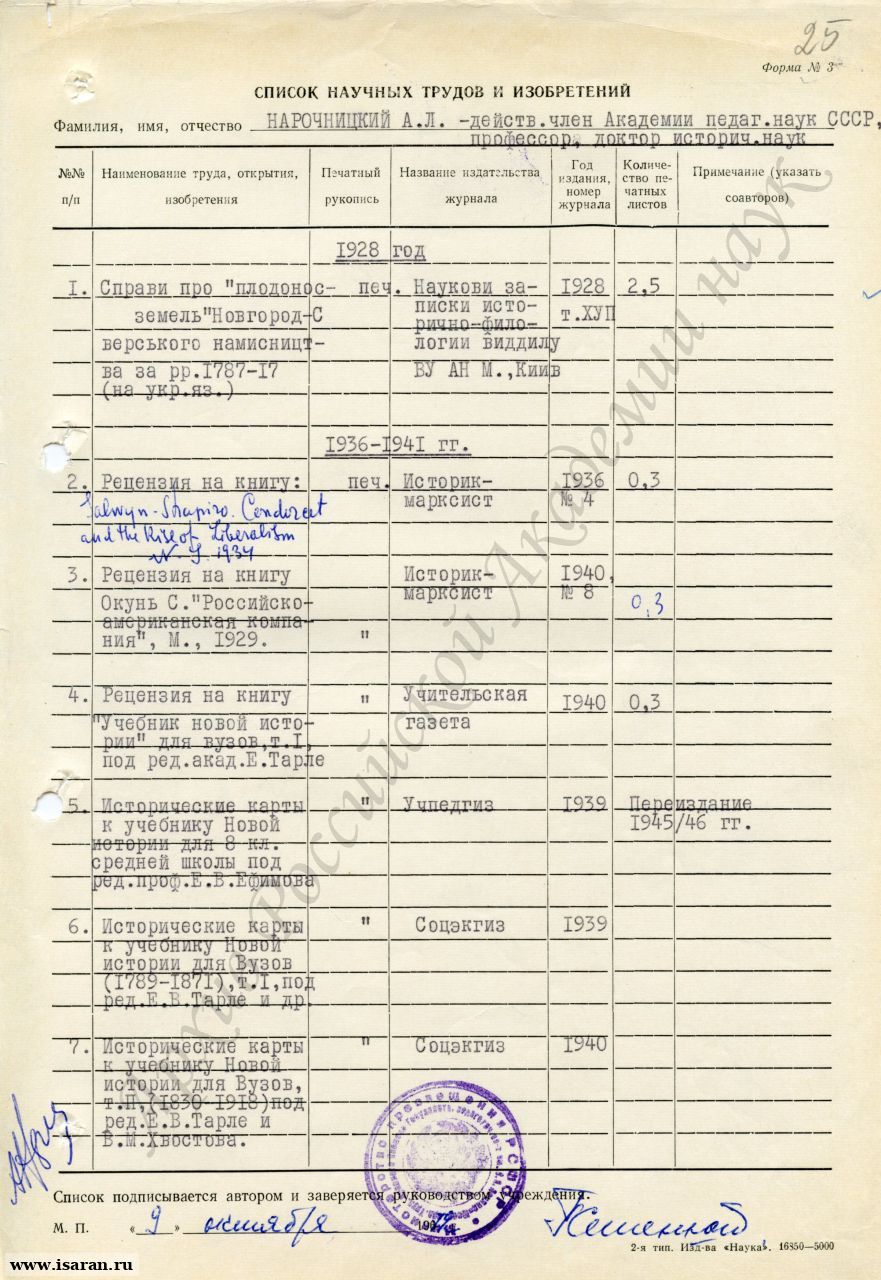 25
Форма № 3
СПИСОК НАУЧНЫХ ТРУДОВ И ИЗОБРЕТЕНИЙ
Фамилия, имя, отчество НАРОЧНИЦКИЙ А.Л. -действ.член Академии педаг.наук СССР,
профессор, доктор историч.наук
№№ п/п
Наименование труда, открытия, изобретения
Печатный рукопись
Название издательства журнала
Год издания, номер журнала
Количество печатных листов
Примечание (указать соавторов)
1928 год
1. Справи про "плодонос- печ. Наукови за- 1928 2,5
земель"Новгород-С писки исто- т.ХУП
рично-фило-
верського намисництлогии виддилу
ва за рр.1787-17 ВУ АН М.,Киив
(на укр.яз.)
1936-1941 гг.
2. Рецензия на книгу: печ. Историк- 1936 0,3
марксист № 4
Salwyn-Shapiro. Condorcet
and the Rise of Liberalism
N. Y. 1934
3. Рецензия на книгу Историк- 1940,
марксист № 8
Окунь С."Российско- 0,3
американская компа-
ния", М., 1929. "
4. Рецензия на книгу " Учительская 1940 0,3
"Учебник новой исто- газета
рии" для вузов,т.I,
под ред.акад.Е.Тарле
5. Исторические карты " Учпедгиз 1939 Переиздание
к учебнику Новой 1945/46 гг.
истории для 8 кл.
средней школы под
ред.проф.Е.В.Ефимова
6. Исторические карты " Соцэкгиз 1939
к учебнику Новой
истории для Вузов
(1789-1871),т.I,под
ред.Е.В.Тарле и др.
7. Исторические карты " Соцэкгиз 1940
к учебнику Новой
истории для Вузов,
т.П,(1830-1918)под
ред.Е.В.Тарле и
В.М.Хвостова.
Министерство просвещения РСФСР
Список подписывается автором и заверяется руководством учреждения.
М. П. « 9 » октября 19
2-я тип. Изд-ва «Наука». 16850—5000
Архив Российской Академии наук
www.isaran.ru